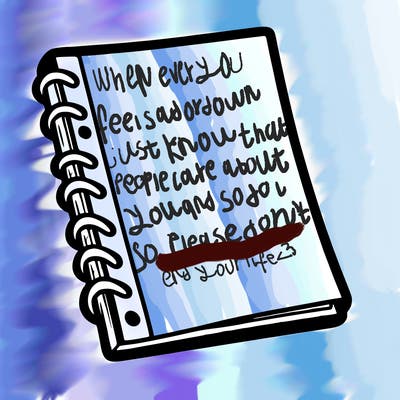 When ever you
feel sad or down
just know that
people care about
you and so do i
so please don't
end your life <3